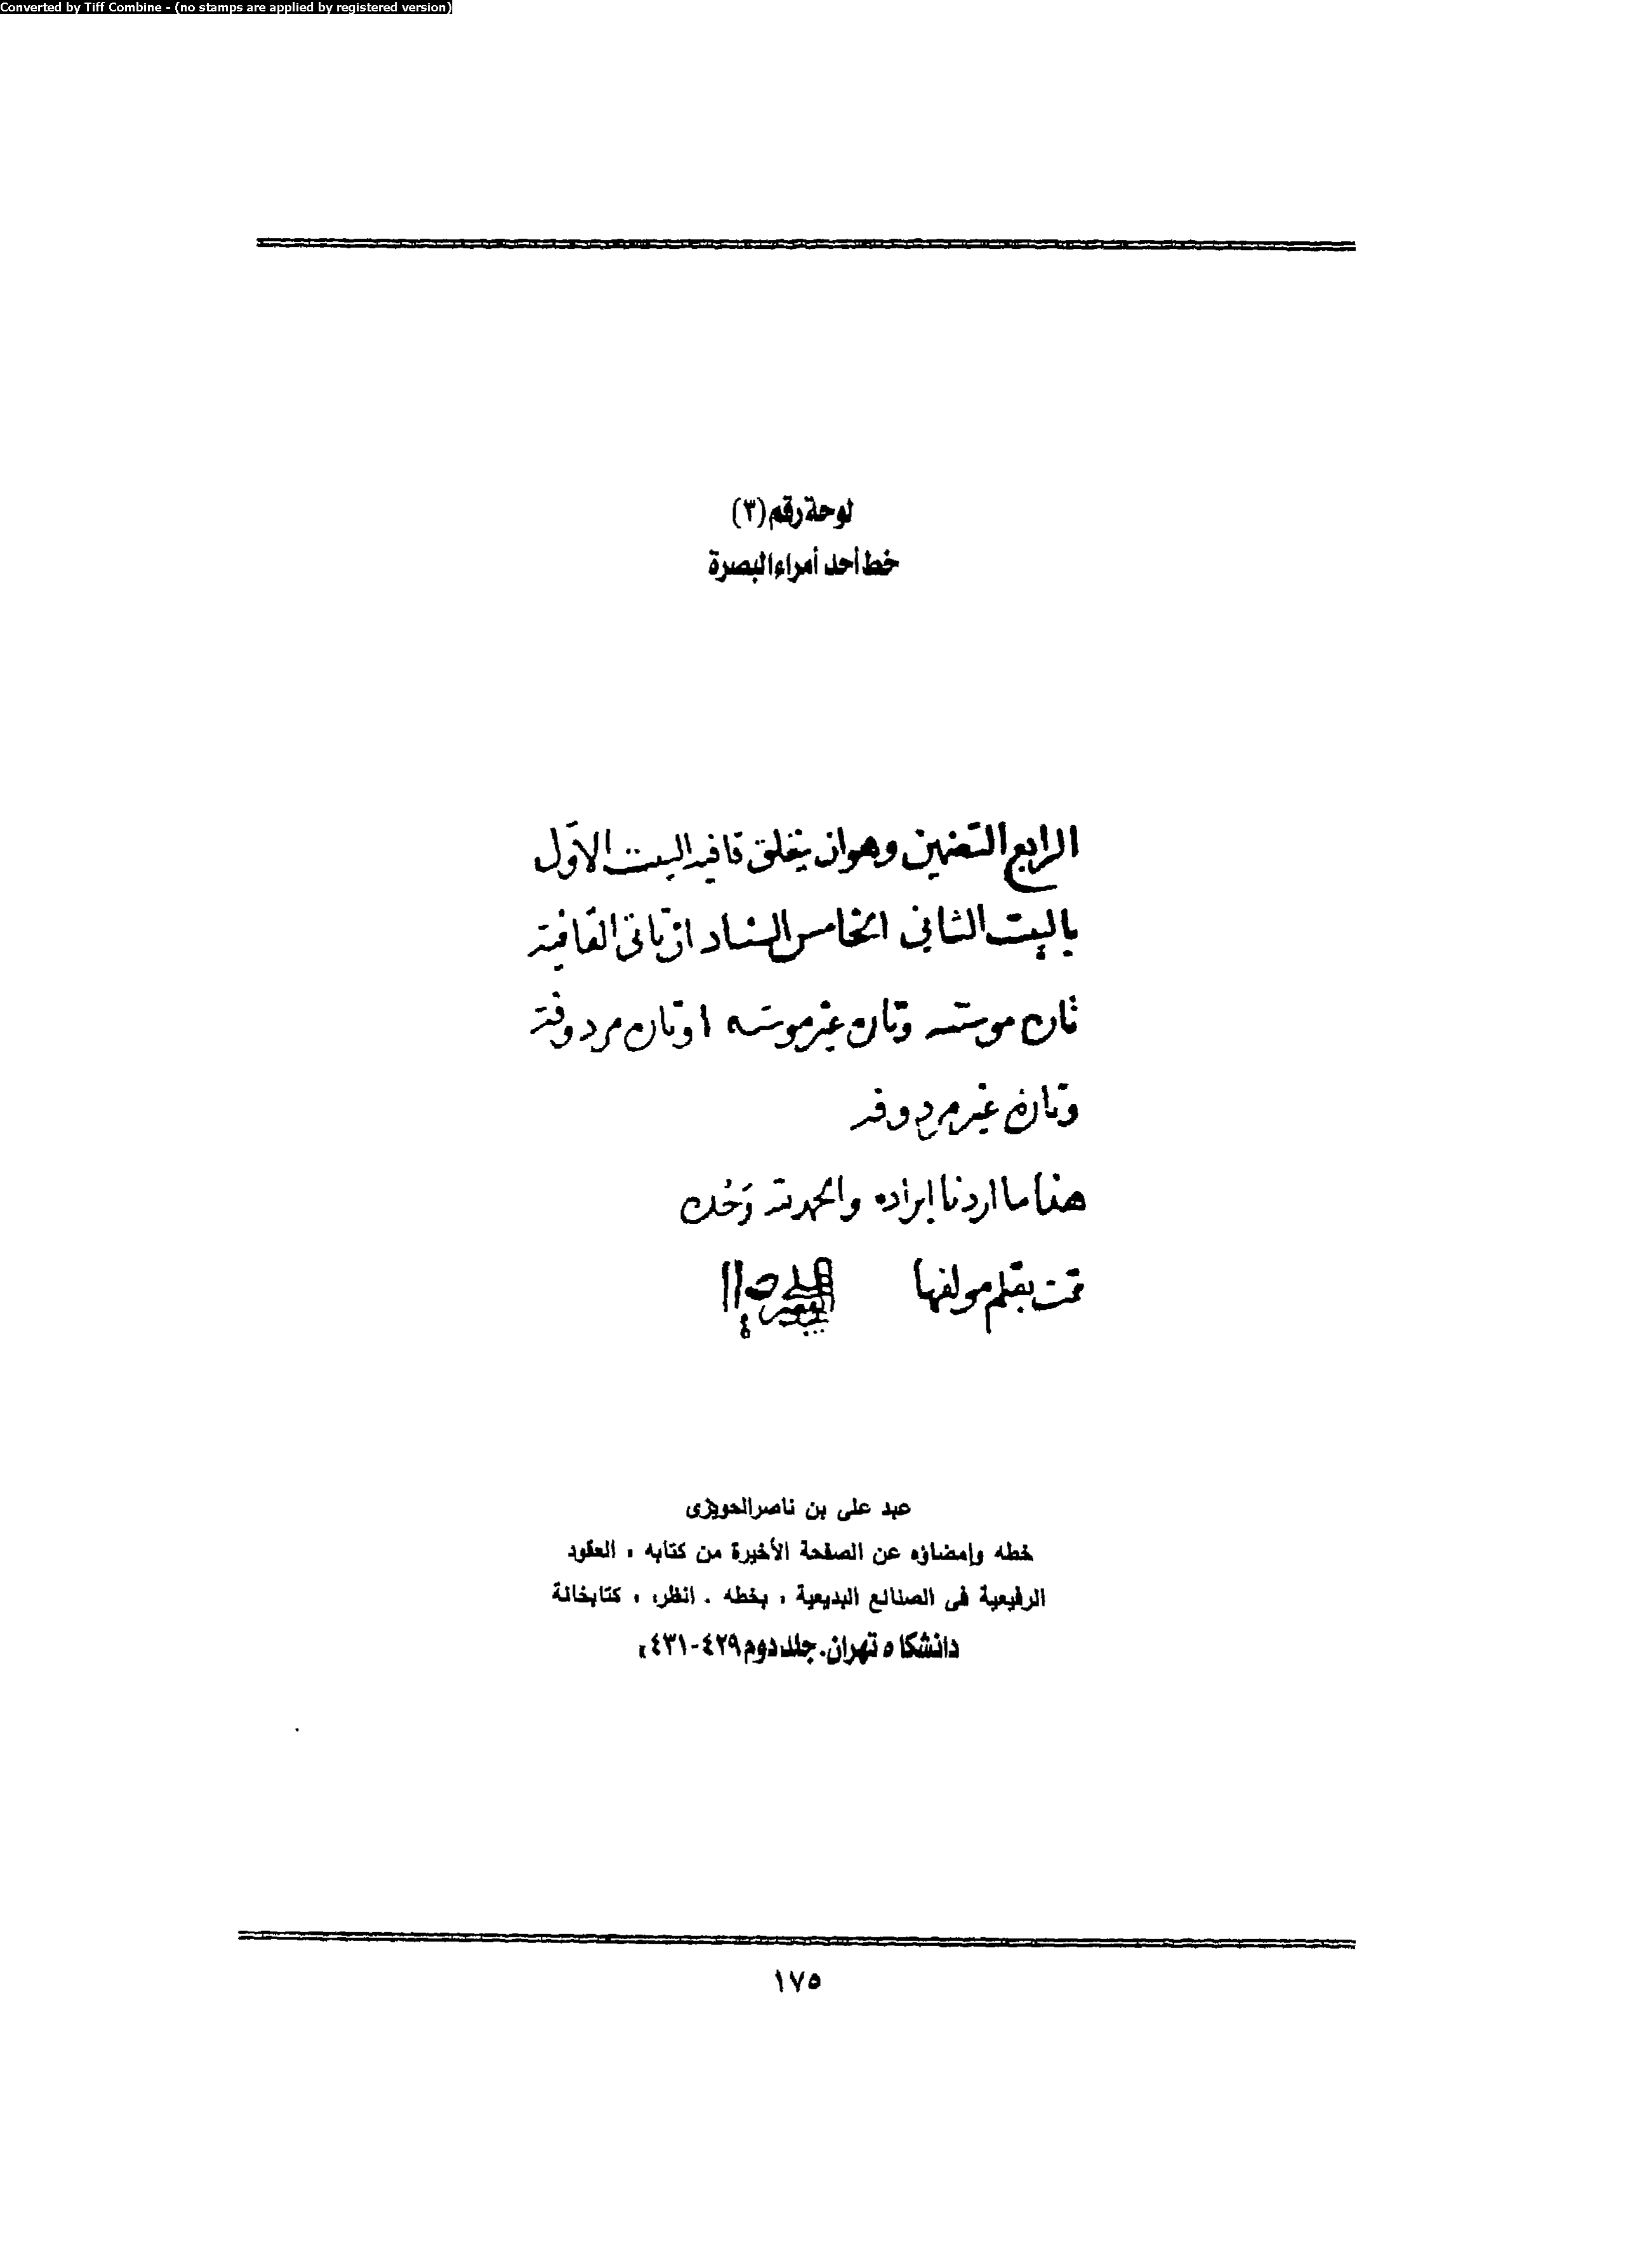 Converted by Tiff Combine - (no stamps are applied by registered version)
لوحة رقم (٣)
خط أحد أمراء البصرة
الرابع التضمين وهو ان يتعلق قافيه البيت الاول
بالبيت الثاني الخامس السناد ان ياتي القافية
تارة موسسه وتارة غير موسسه او تارة مردوفة
وتارة غير مردوفه
هذا ما اردنا ايراده والحمد لله وحده
تمت بقلم مولفها
عبد على بن ناصر الحويزى
خطه وإمضاؤه عن الصفحة الأخيرة من كتابه « العقود
الرفيعية فى الصنائع البديعية » بخطه . انظر: « كتابخانة
دانشكاه تهران. جلد دوم ٤٢٩-٤٣١ »
١٧٥